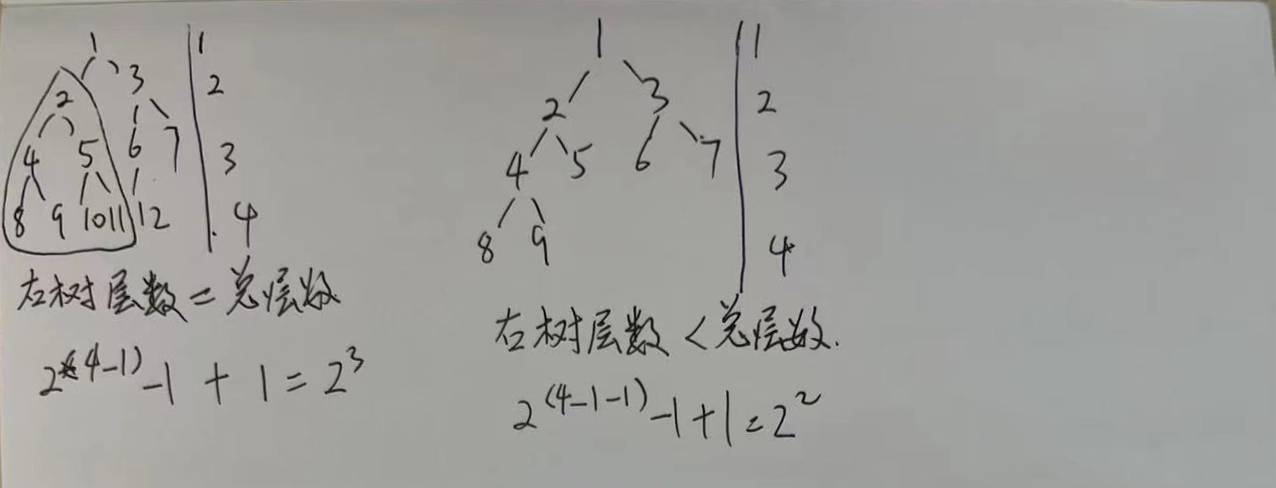 1 | 1
2 3 | 2
4 5 6 7 | 3
8 9 10 11 12 | 4
右树层数 = 总层数
2^(4-1) -1 + 1 = 2^3
1 | 1
2 3 | 2
4 5 6 7 | 3
8 9 | 4
右树层数 < 总层数.
2^(4-1-1) -1+1 = 2^2